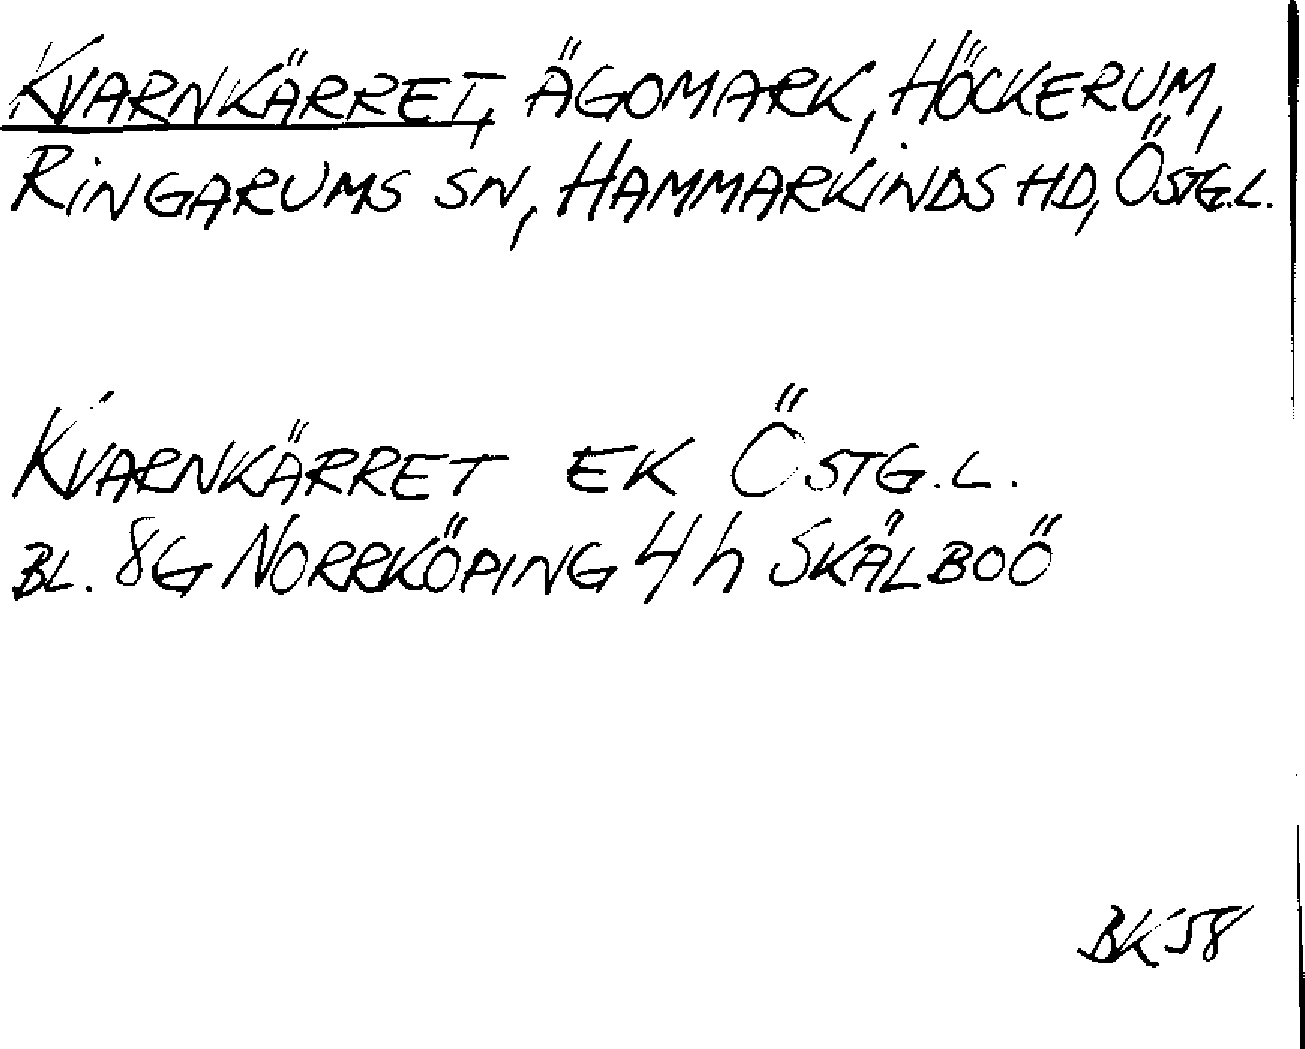 KVARNKÄRRET, ÄGOMARK, HÖCKERUM,
RINGARUMS SN, HAMMARKINDS HD, ÖSTG.L.
KVARNKÄRRET EK ÖSTG.L.
BL. 8G NORRKÖPING 4h SKÅLBOÖ
BK 58